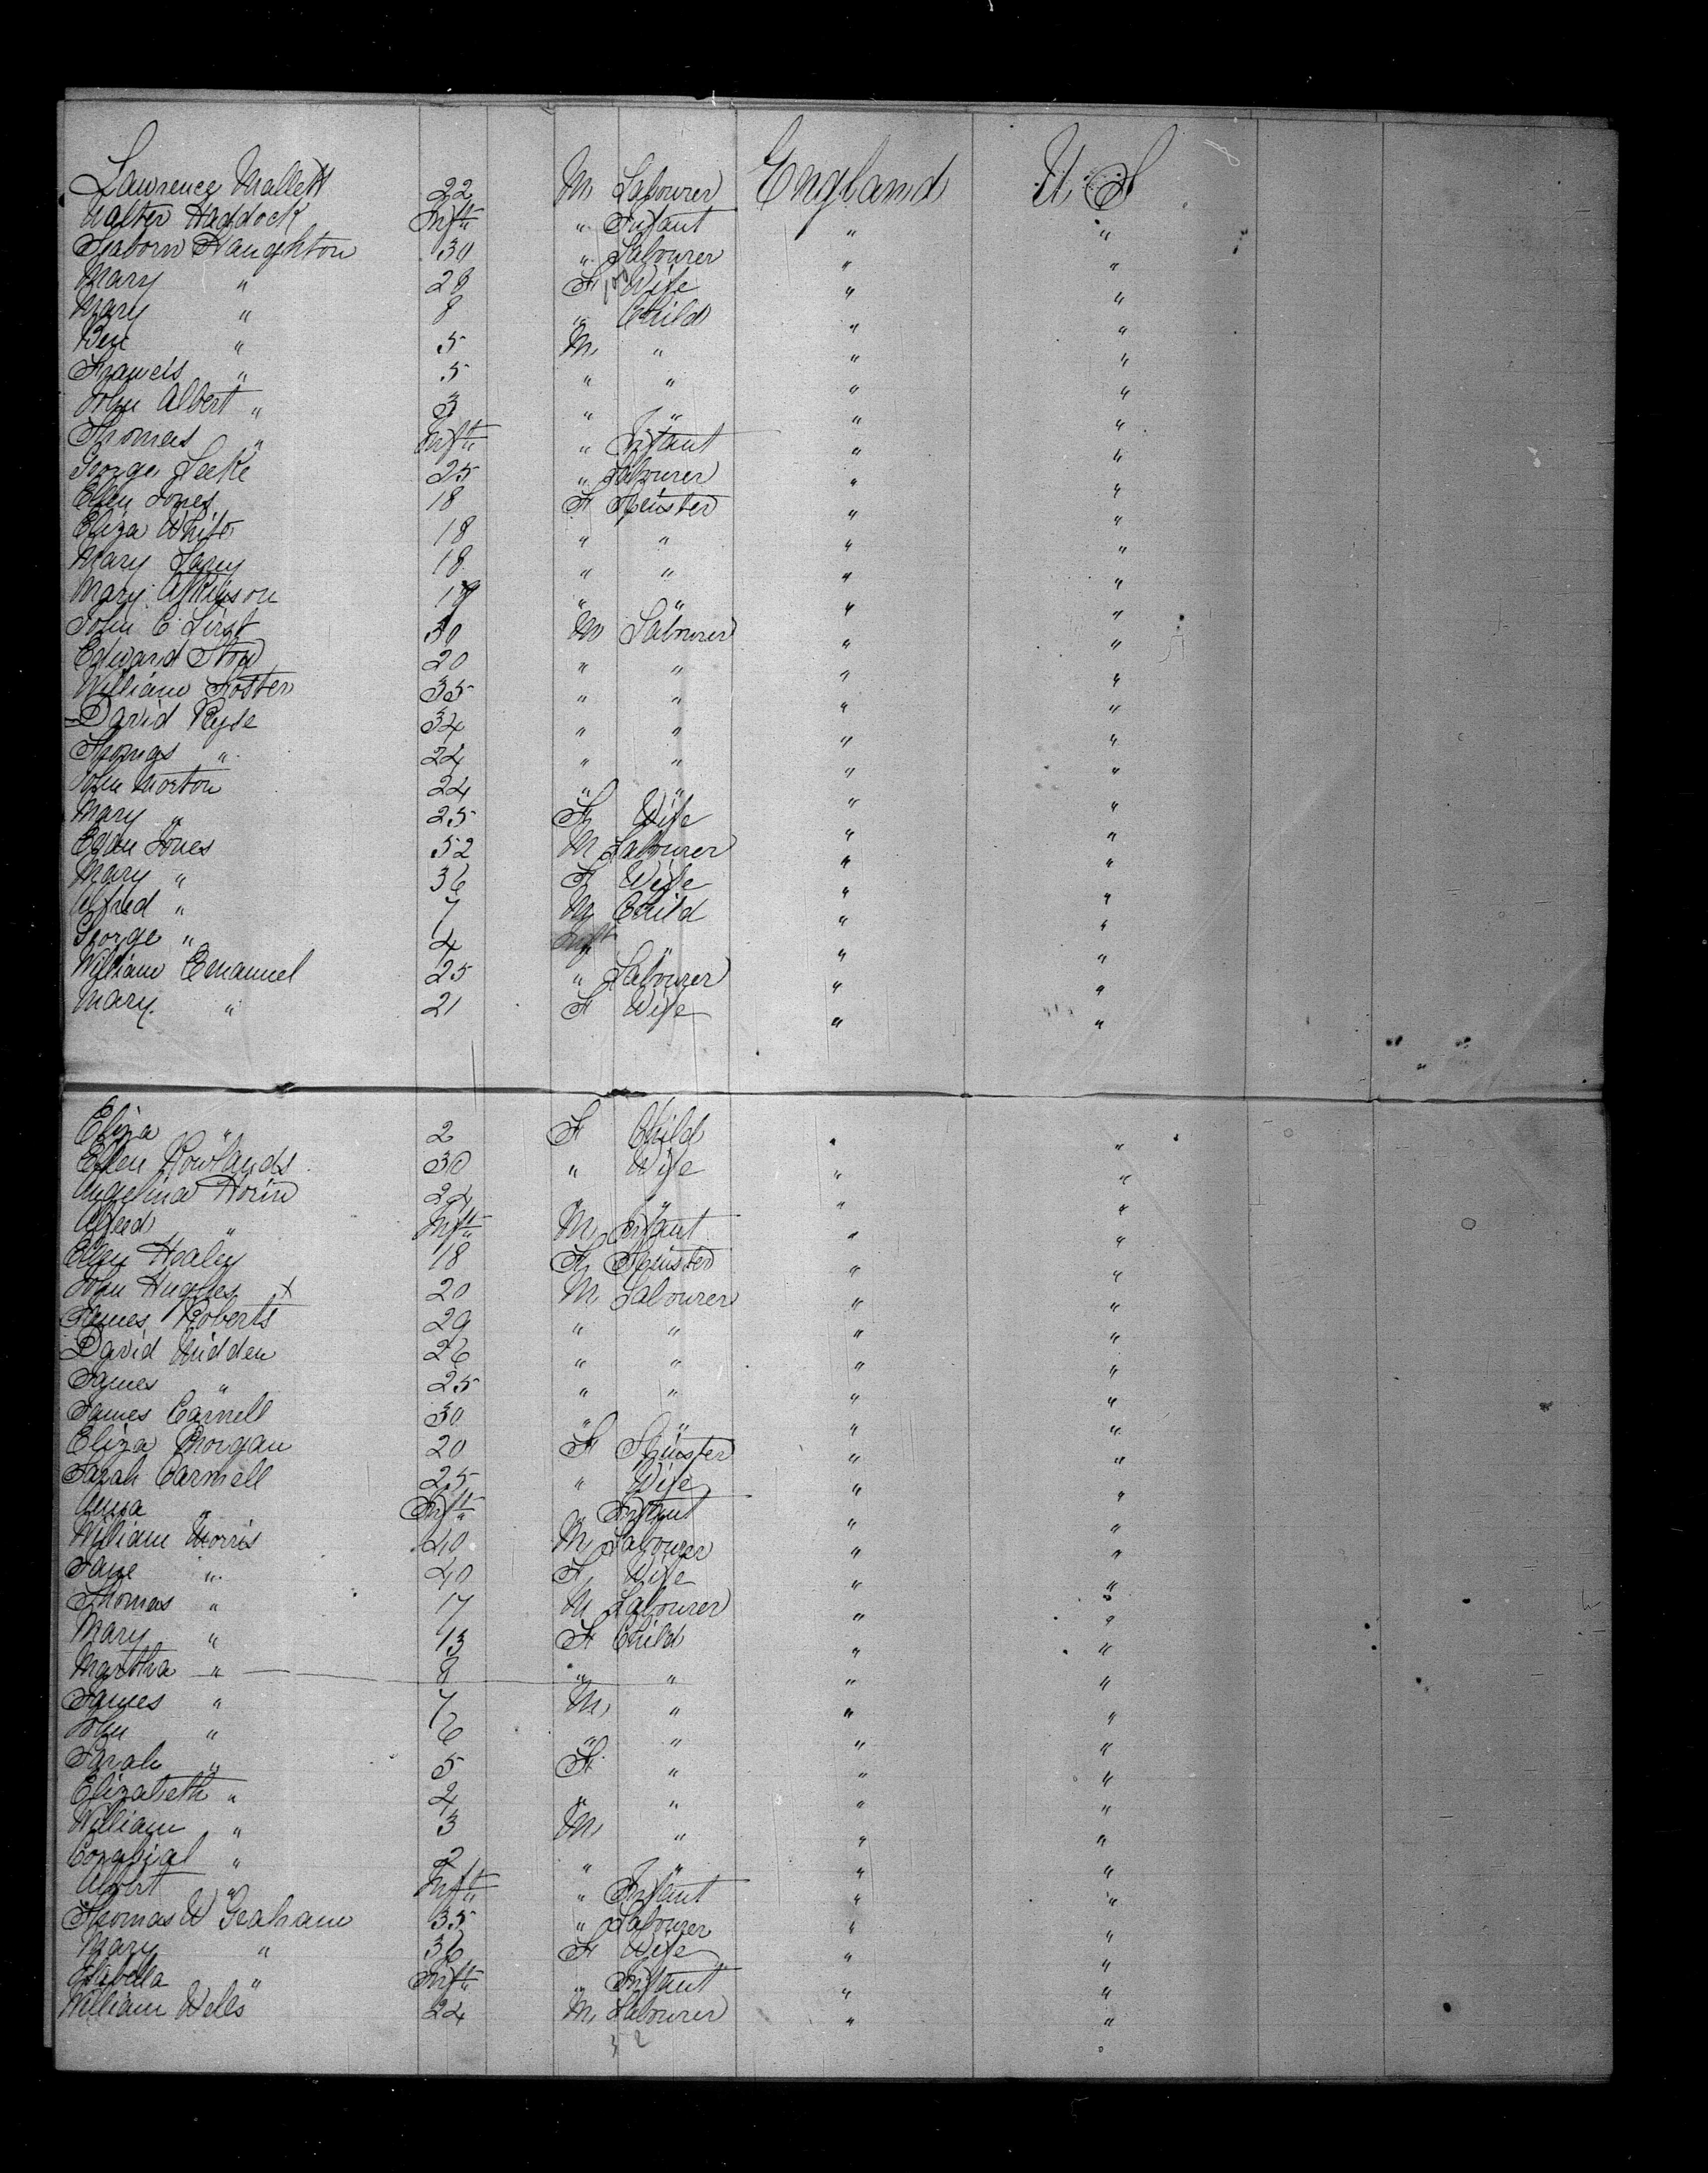 Lawrence Mallett 22 M Labourer England U.S
Walter Haddock Inft " Infant " "
Seaborn Haughton 30 " Labourer " "
Mary " 28 F Wife " "
Mary " 8 " Child " "
Ben " 5 M " " "
Francis " 5 " " " "
John Albert " 3 " " " "
Thomas " Inft " Infant " "
George Leeke 25 " Labourer " "
Ellen Jones 18 F Spinster " "
Eliza White 18 " " " "
Mary 18 " " " "
Mary Atkinson 19 " " " "
John C 30 M Labourer " "
Edward 20 " " " "
William Foster 35 " " " "
David Ryde 34 " " " "
Thomas " 24 " " " "
John Morton 24 " " " "
Mary " 25 F Wife " "
Jones 52 M Labourer " "
Mary " 36 F Wife " "
Alfred " 7 M Child " "
George " 4 " " " "
William Emanuel 25 " Labourer " "
Mary " 21 F Wife " "
Eliza " 2 F Child " "
Ellen Rowlands 30 " Wife " "
Angelina Horin 24 " " " "
Alfred " Inft M Infant " "
Ellen Healey 18 F Spinster " "
John Hughes x 20 M Labourer " "
James Roberts 29 " " " "
David Midden 26 " " " "
James " 25 " " " "
James Carnell 30 " " " "
Eliza Morgan 20 F Spinster " "
Sarah Carnell 25 " Wife " "
" Inft " Infant " "
William Morris 40 M Labourer " "
Jane " 40 F Wife " "
Thomas " 17 M Labourer " "
Mary " 13 F Child " "
Martha " 8 " " " "
James " 7 M " " "
John " 6 " " " "
Sarah " 5 F " " "
Elizabeth " 4 " " " "
William " 3 M " " "
" 2 " " " "
Albert " Inft " Infant " "
Thomas W Graham 35 " Labourer " "
Mary " 36 F Wife " "
Isabella " Inft " Infant " "
William Wells 24 M Labourer " "